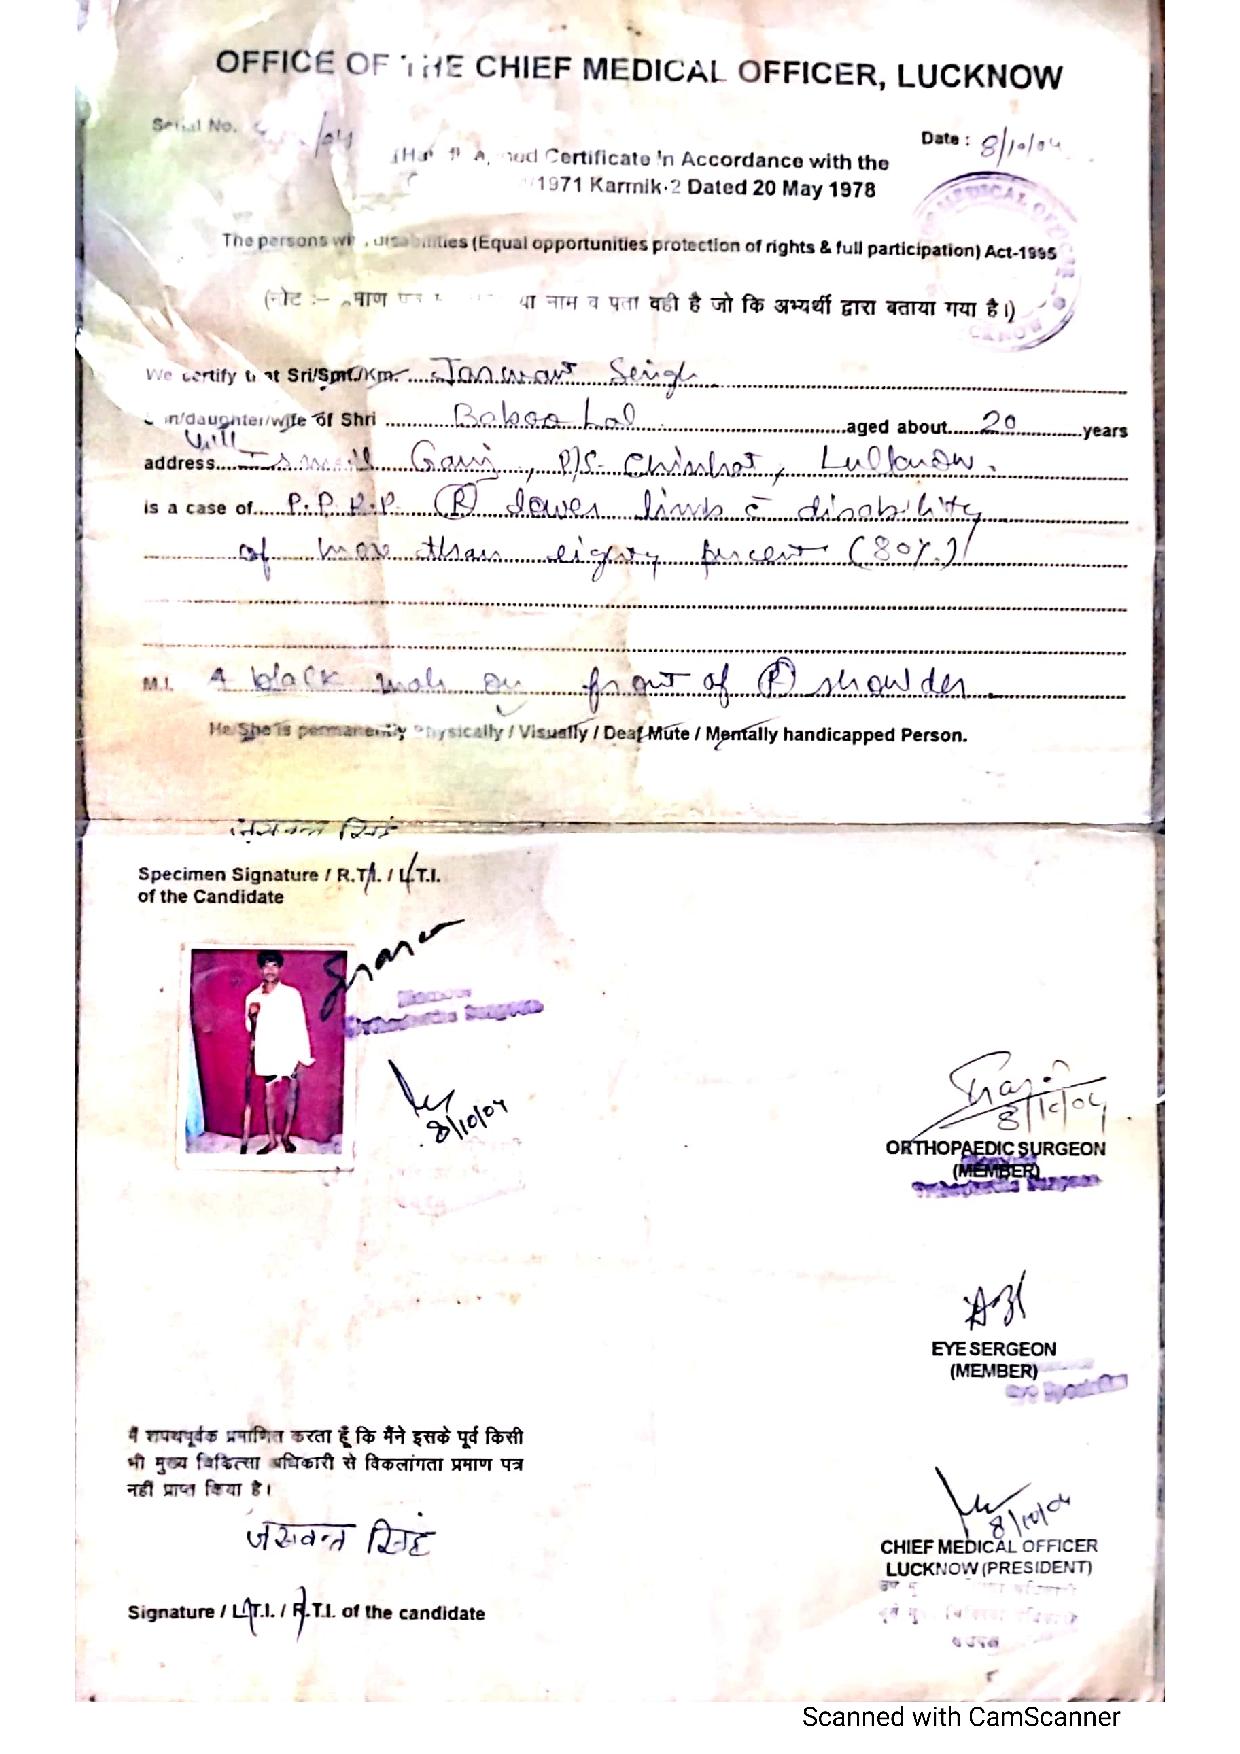 OFFICE OF THE CHIEF MEDICAL OFFICER, LUCKNOW
Serial No. /04
Date : 8/10/04
Certificate In Accordance with the
1971 Karmik-2 Dated 20 May 1978
MEDICAL OFFICER
LUCKNOW
The persons with disabilities (Equal opportunities protection of rights & full participation) Act-1995
(नोट :- प्रमाण पत्र नाम व पता वही है जो कि अभ्यर्थी द्वारा बताया गया है।)
We certify that Sri/Smt./Km. Jaswant Singh
Son/daughter/wife of Shri Baboo Lal aged about 20 years
Vill
address Ismail Ganj, P/S- Chinhat, Lucknow.
is a case of P.P.R.P. (R) lower limb c̄ disability
of more than eighty percent (80%)
M.I. A black mole on front of (R) shoulder
He/She is permanently Physically / Visually / Deaf Mute / Mentally handicapped Person.
जसवन्त सिंह
Specimen Signature / R.T.I. / L.T.I.
of the Candidate
Orthopaedic Surgeon
8/10/04
8/10/04
ORTHOPAEDIC SURGEON
(MEMBER)
Orthopaedic Surgeon
EYE SERGEON
(MEMBER)
Eye Specialist
मैं शपथपूर्वक प्रमाणित करता हूँ कि मैंने इसके पूर्व किसी
भी मुख्य चिकित्सा अधिकारी से विकलांगता प्रमाण पत्र
नहीं प्राप्त किया है।
जसवन्त सिंह
Signature / L.T.I. / R.T.I. of the candidate
8/10/04
CHIEF MEDICAL OFFICER
LUCKNOW (PRESIDENT)
Scanned with CamScanner